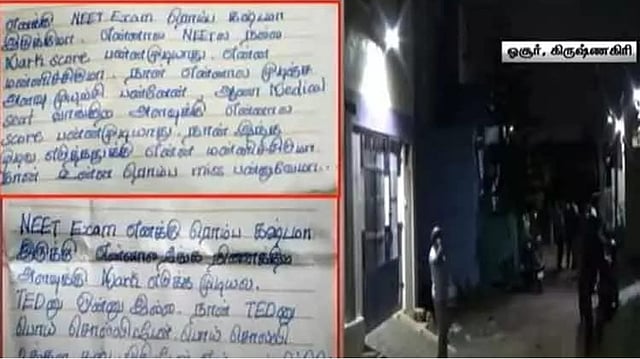 எனக்கு NEET Exam ரொம்ப கஷ்டமா
இருக்குமா. என்னால NEETல நல்ல
Mark score பண்ணமுடியாது. என்ன
மன்னிச்சிடுமா. நான் என்னால முடிஞ்ச
அளவு முயற்சி பண்ணேன். ஆனா Medical
seat வாங்குற அளவுக்கு என்னால
score பண்ணமுடியாது. நான் இந்த
முடிவ எடுத்ததுக்கு என்ன மன்னிச்சிடுமா.
நான் உன்ன ரொம்ப miss பண்ணுவேமா..
NEET Exam எனக்கு ரொம்ப கஷ்டமா
இருக்கு என்னால
அளவுக்கு Mark எடுக்க முடியல.
TEDனு ஒன்னு இல்ல. நான் TEDனு
பொய் சொல்லிட்டேன். பொய் சொல்லி
ஓசூர், கிருஷ்ணகிரி